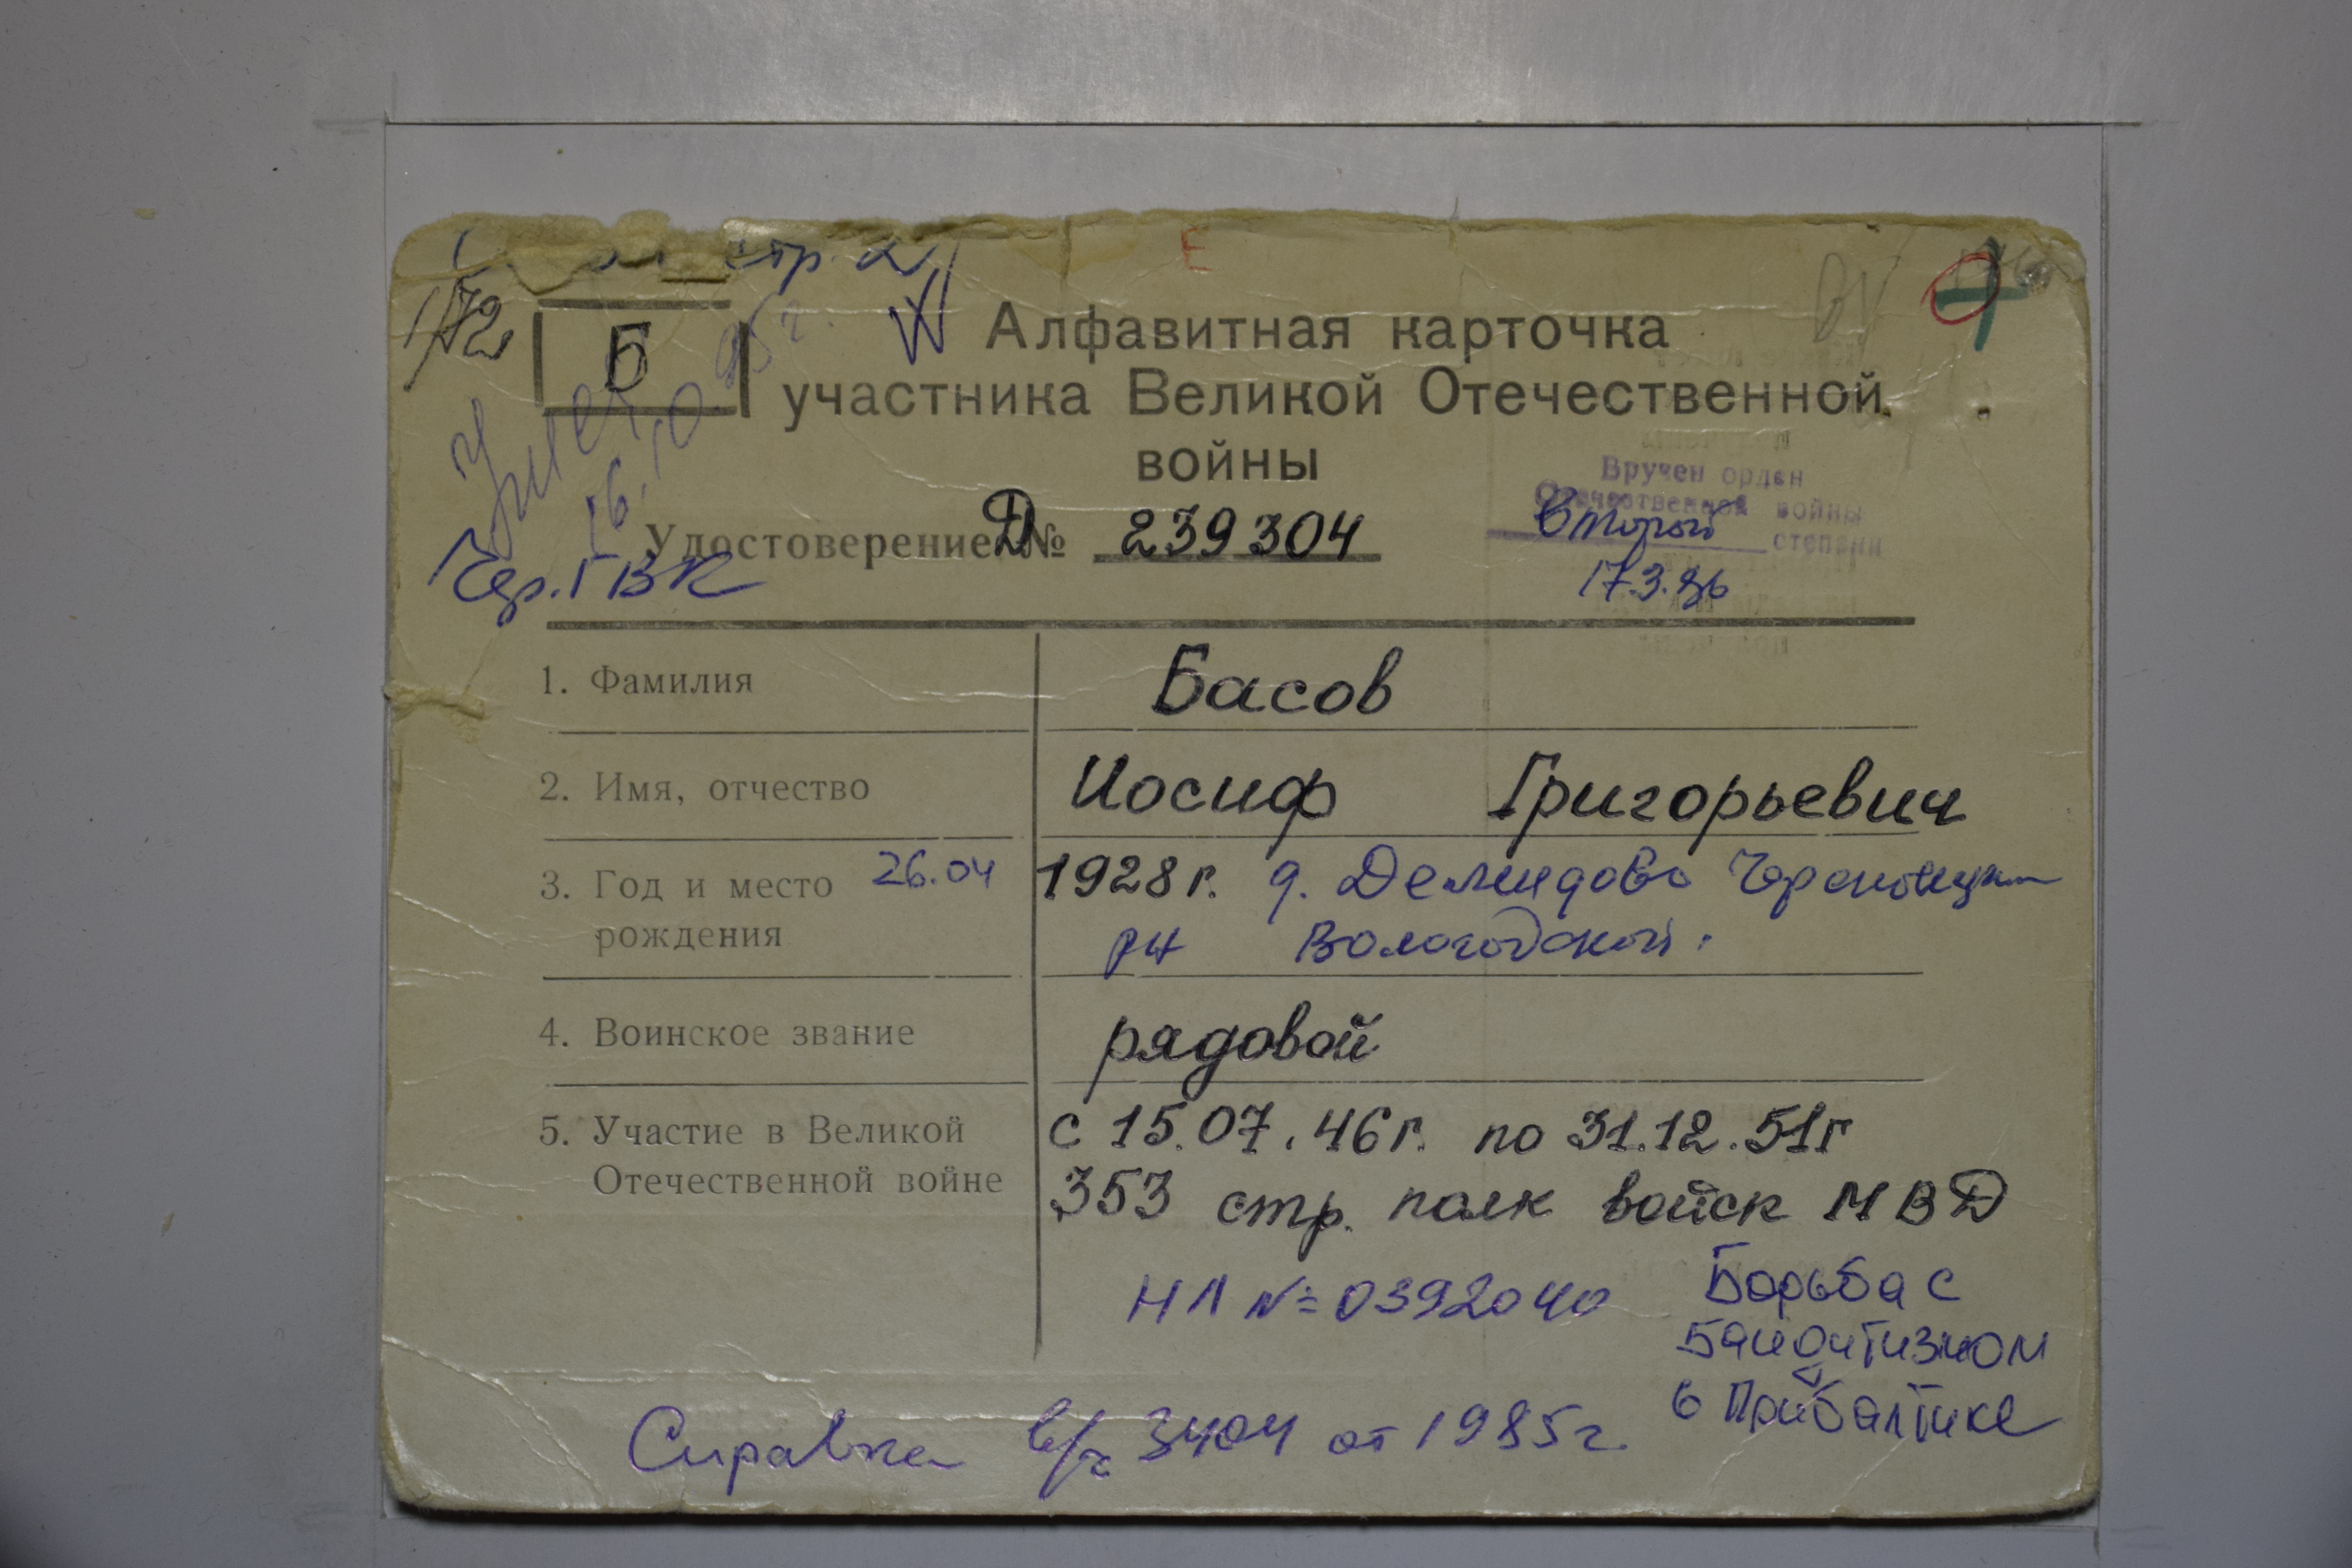 стр. 2
1/72
Б
Алфавитная карточка
участника Великой Отечественной
войны
Умер
16.10.95г.
Вручен орден
Отечественной войны
Второй степени
17.3.86
Удостоверение Д № 239304
Чер. ГВК
1. Фамилия Басов
2. Имя, отчество Иосиф Григорьевич
3. Год и место 26.04 1928 г. д. Демидово Череповецкий
рождения рн Вологодской
4. Воинское звание рядовой
5. Участие в Великой с 15.07.46г. по 31.12.51г
Отечественной войне 353 стр. полк войск МВД
НЛ № 0392040
Борьба с
Бандитизмом
в Прибалтике
Справка в/ч 3404 от 1985г.